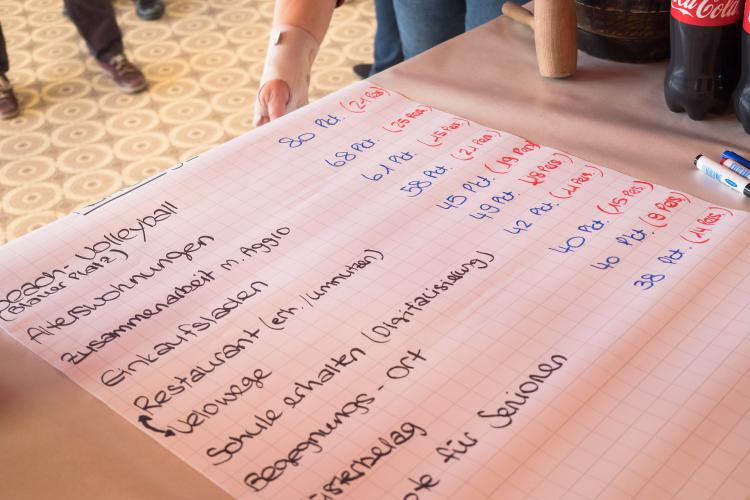 Beach-Volleyball 80 Pkt. (21 Pers.)
(Blauer Platz)
Alterswohnungen 68 Pkt. (25 Pers.)
Zusammenarbeit m. Agglo 61 Pkt. (15 Pers.)
Einkaufsladen 58 Pkt. (21 Pers.)
Restaurant (ern./Umnutzen) 45 Pkt. (19 Pers.)
Velowege 49 Pkt. (18 Pers.)
Schule erhalten (Digitalisierung) 42 Pkt. (11 Pers.)
Begegnungs-Ort 40 Pkt. (15 Pers.)
40 Pkt. (9 Pers.)
für Senioren 38 Pkt. (14 Pers.)
Coca-Cola